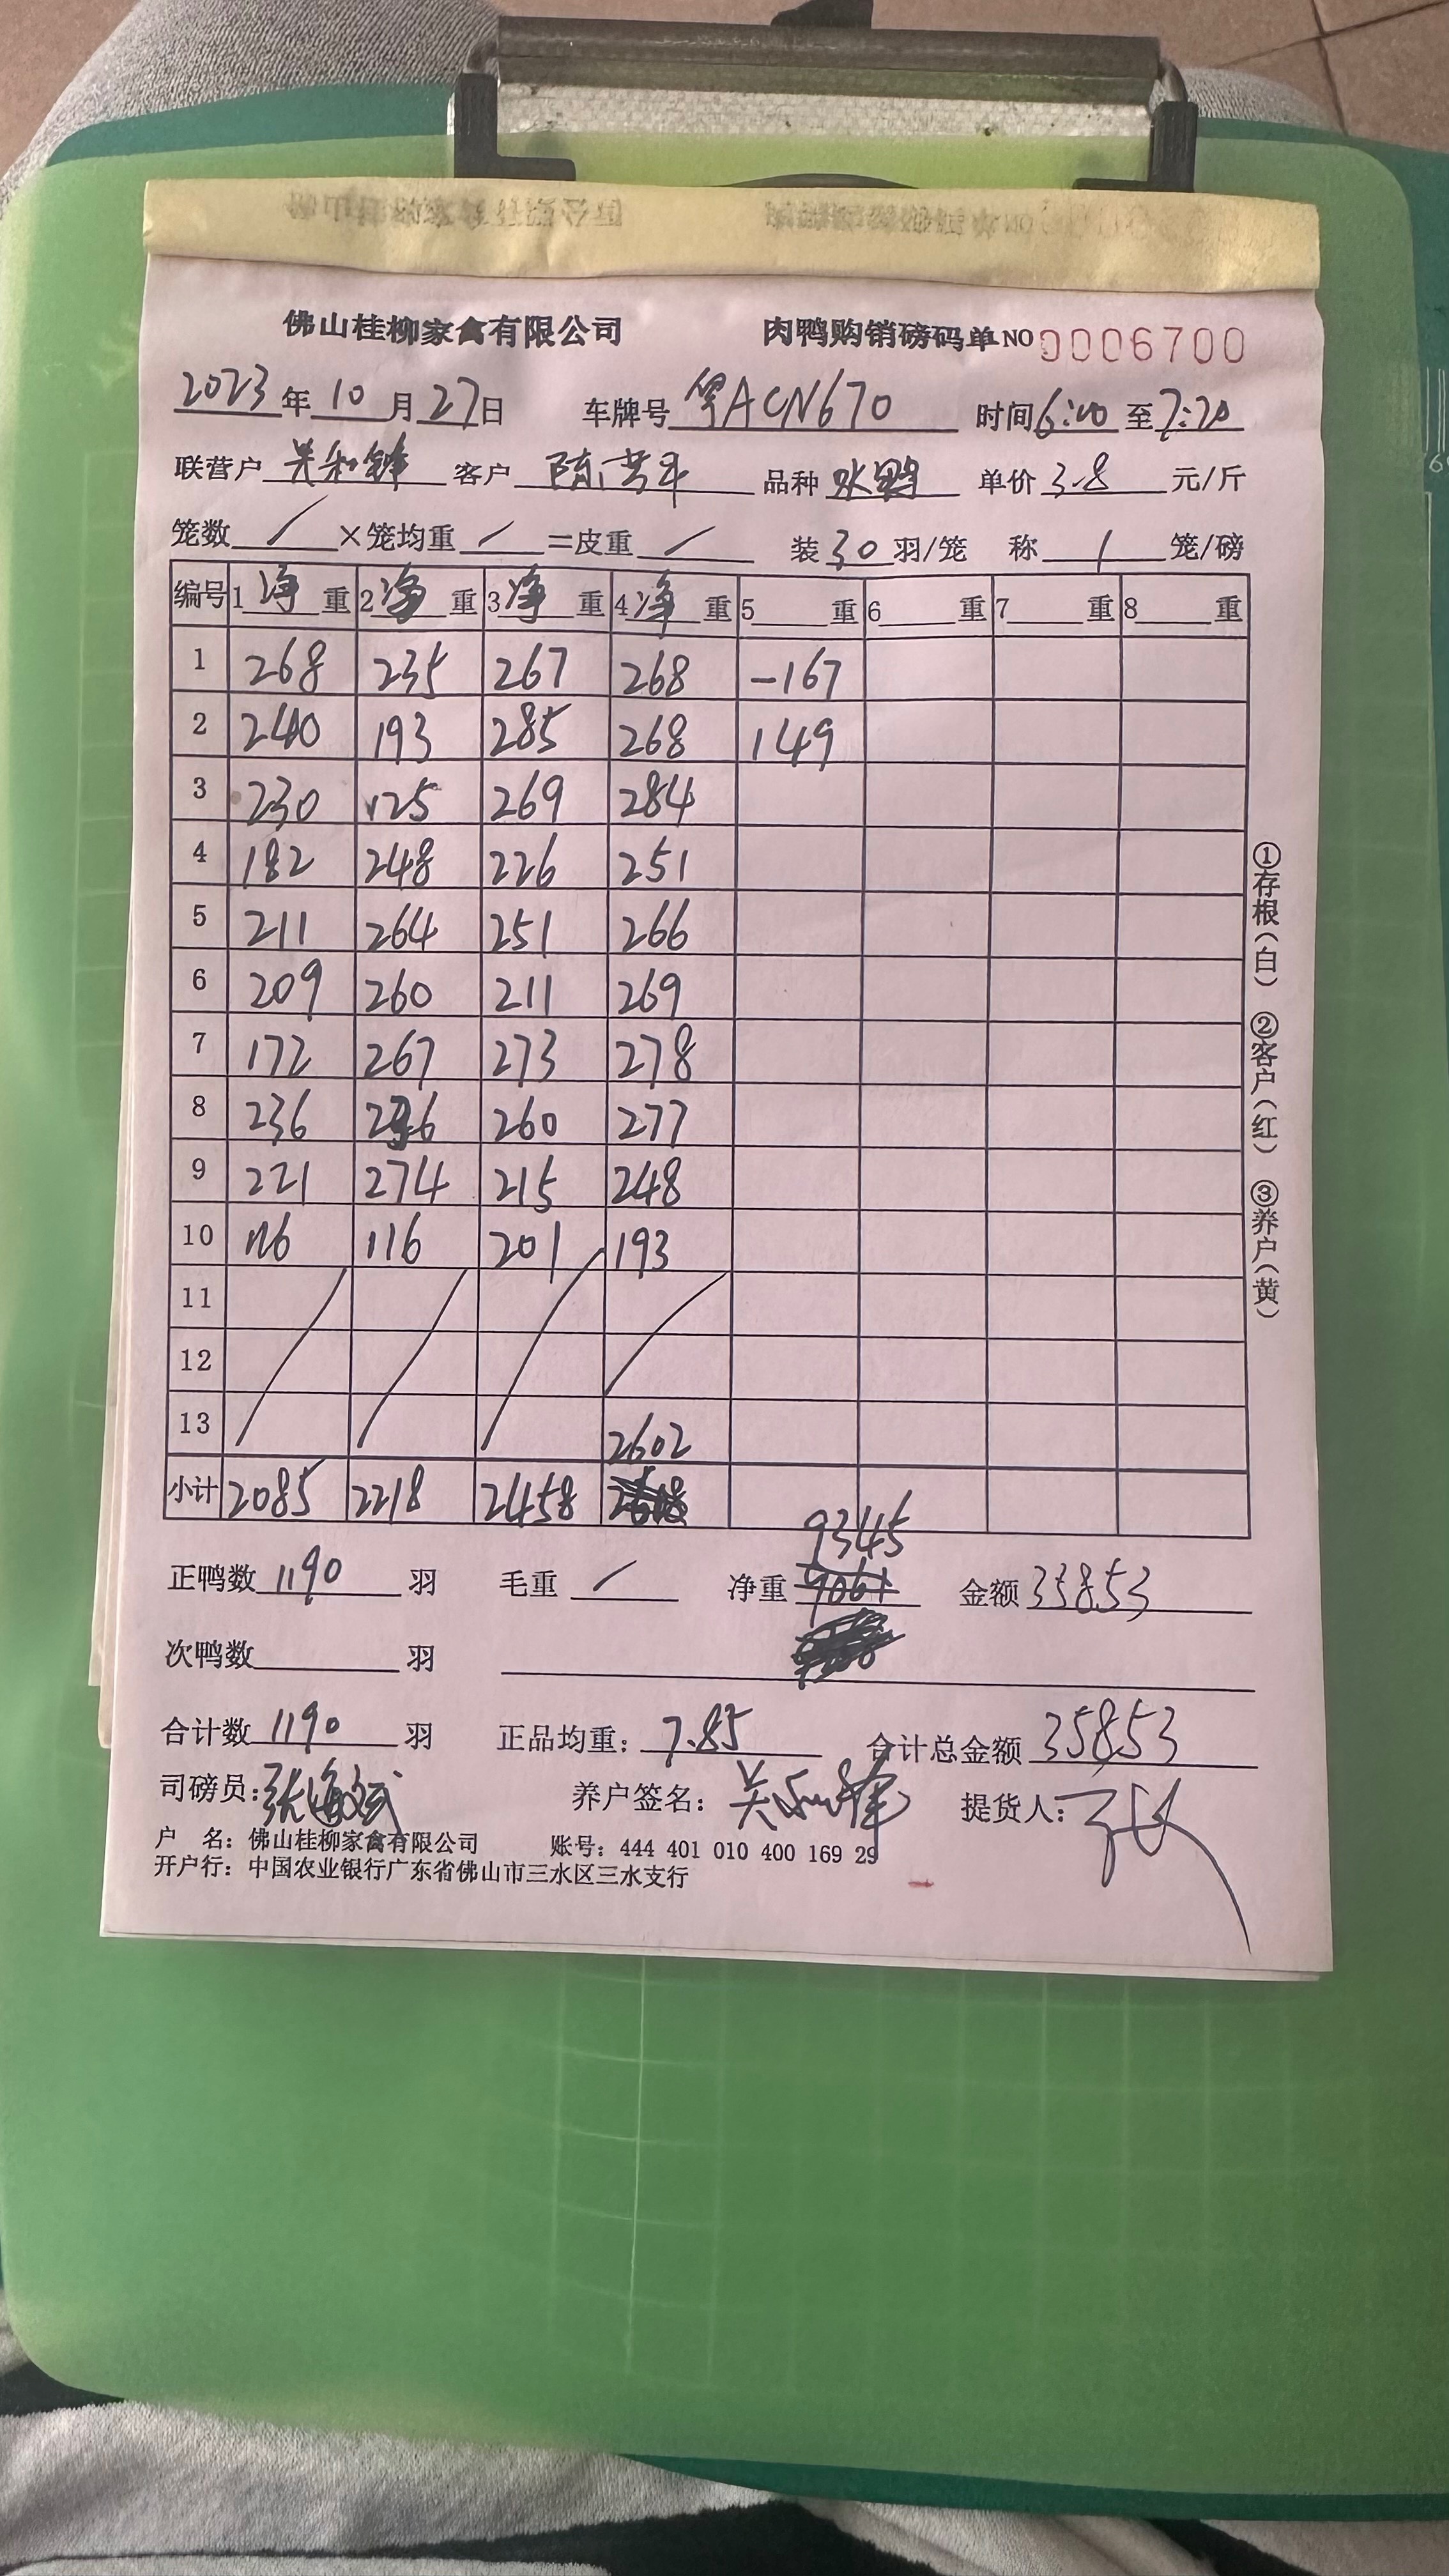 佛山桂柳家禽有限公司 肉鸭购销磅码单 NO 0006700
2023年10月27日 车牌号 粤ACN670 时间6:00至7:20
联营户 关和锋 客户 陈 品种 单价 3.8 元/斤
笼数 / ×笼均重 / =皮重 / 装 30 羽/笼 称 1 笼/磅
编号 1 净 重 2 净 重 3 净 重 4 净 重 5 重 6 重 7 重 8 重
1 268 235 267 268 -167
2 240 193 285 268 149
3 230 125 269 284
4 182 248 226 251
5 211 264 251 266
6 209 260 211 269
7 172 267 273 278
8 236 236 260 277
9 221 274 215 248
10 116 116 201 193
11
12
13 2602
小计 2085 2218 2458
9345
正鸭数 1190 羽 毛重 / 净重 9061 金额 35853
次鸭数 羽
合计数 1190 羽 正品均重: 7.85 合计总金额 35853
司磅员: 张海斌 养户签名: 关和锋 提货人:
户 名: 佛山桂柳家禽有限公司 账号: 444 401 010 400 169 29
开户行: 中国农业银行广东省佛山市三水区三水支行
①存根(白) ②客户(红) ③养户(黄)